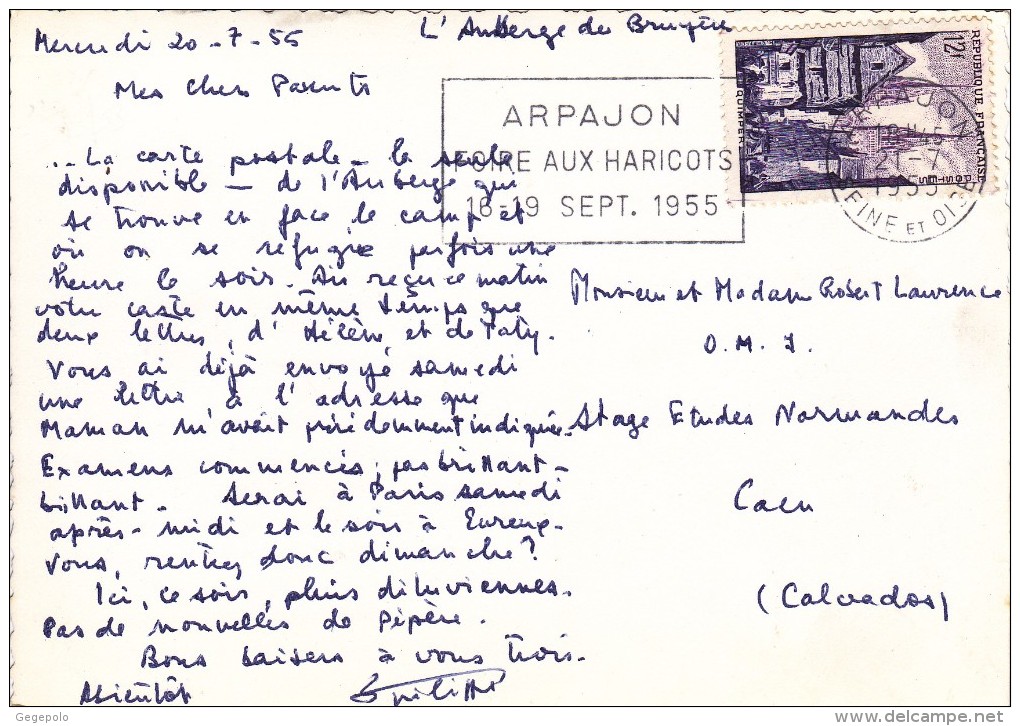 Mercredi 20-7-55
L'Auberge des Bruyères
Mes Chers Parents
...La carte postale - la seule
disponible - de l'Auberge que
se trouve en face le camp et
où on se réfugie parfois une
heure le soir. Ai reçu ce matin
votre carte en même temps que
deux lettres, d'Hélène et de Taty.
Vous ai déjà envoyé samedi
une lettre à l'adresse que
Maman m'avait précédemment indiquée.
Examens commencés ; pas brillant-
brillant. Serai à Paris samedi
après-midi et le soir à Evreux-
Vous, rentrez donc dimanche ?
Ici, ce soir, pluies diluviennes.
Pas de nouvelles de Pépère.
Bons baisers à vous trois.
Abientôt
Philippe
ARPAJON
FOIRE AUX HARICOTS
18-19 SEPT. 1955
REPUBLIQUE FRANÇAISE
POSTES
12F
QUIMPER
ARPAJON
21-7
1955
SEINE ET OISE
Monsieur et Madame Robert Lawrence
O. M. J.
Stage Etudes Normandes
Caen
(Calvados)
Gegepolo
www.delcampe.net